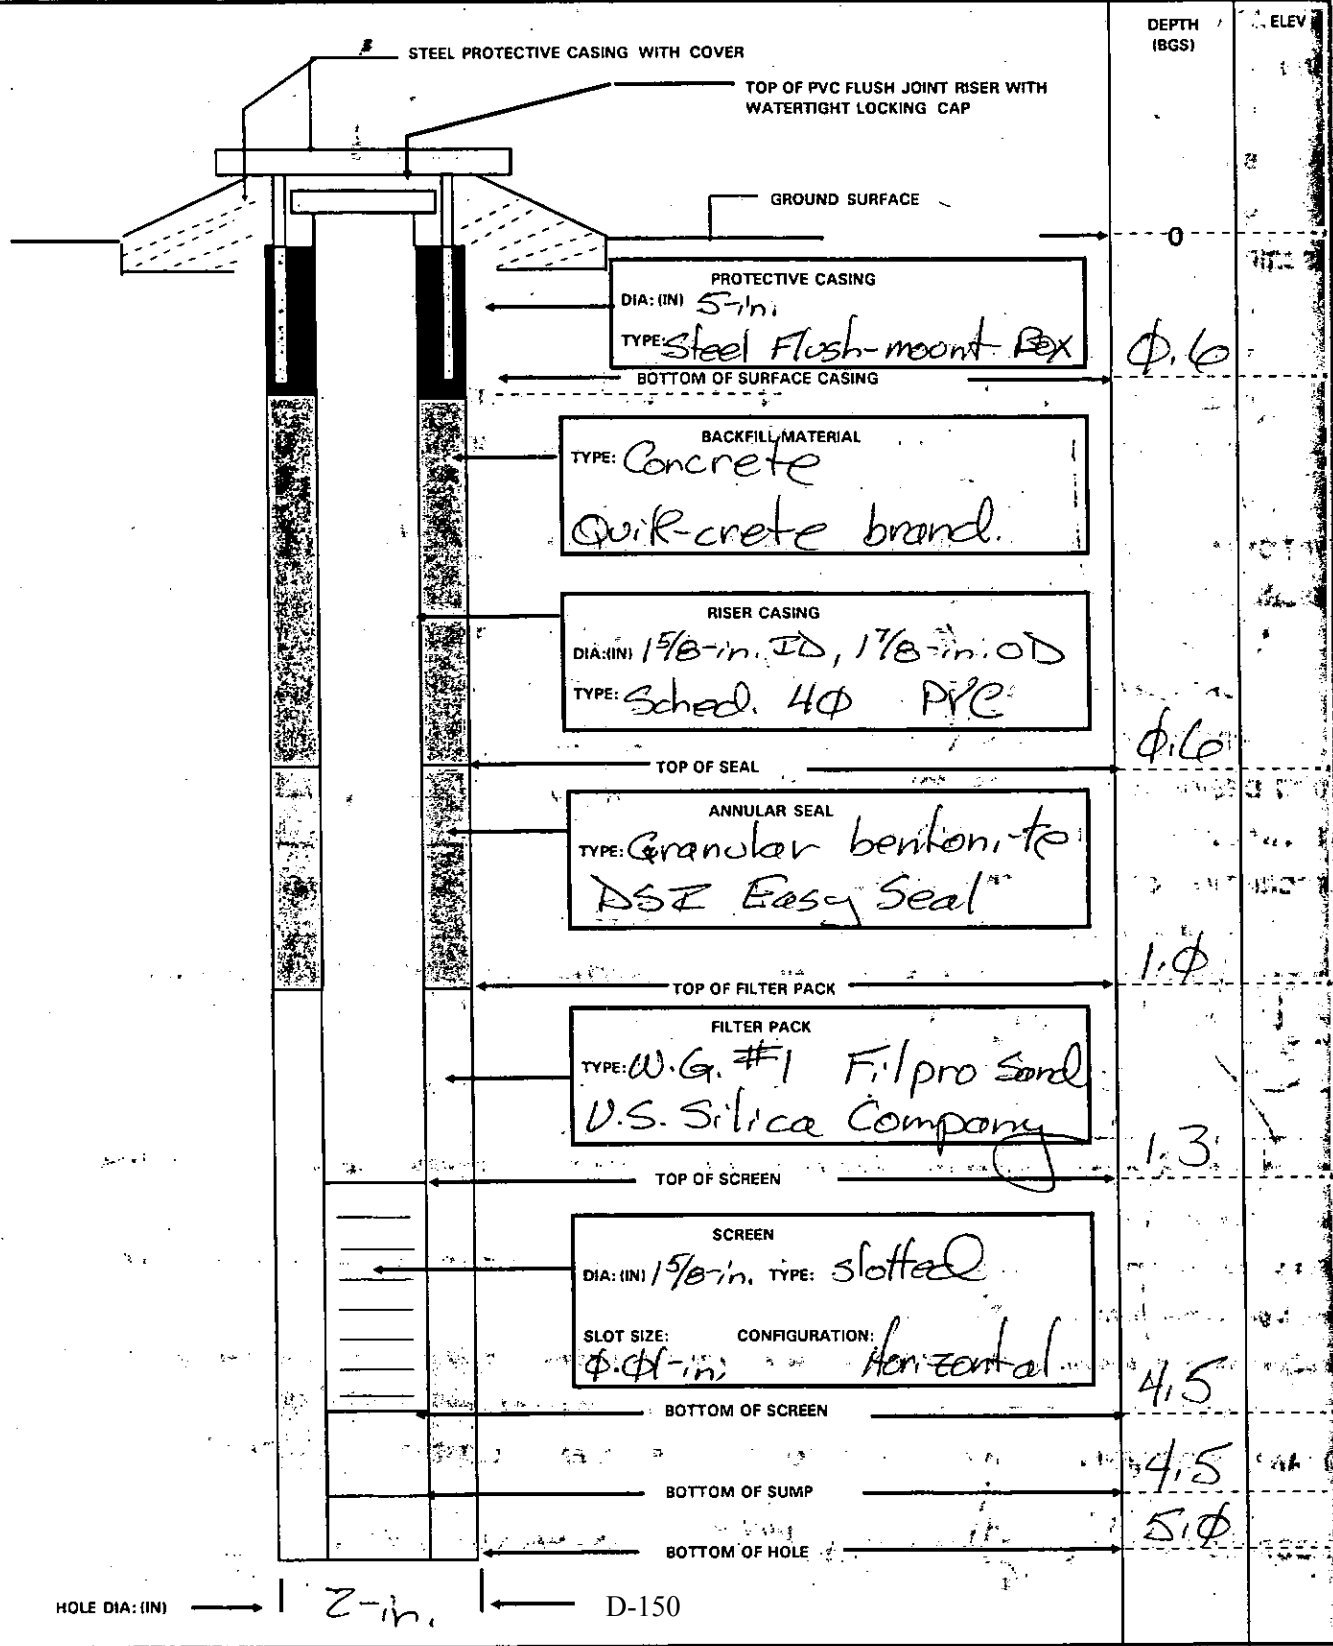 DEPTH
(BGS)
ELEV
STEEL PROTECTIVE CASING WITH COVER
TOP OF PVC FLUSH JOINT RISER WITH
WATERTIGHT LOCKING CAP
GROUND SURFACE
0
PROTECTIVE CASING
DIA: (IN) 5-in.
TYPE: Steel Flush-mount Box
0.6
BOTTOM OF SURFACE CASING
BACKFILL MATERIAL
TYPE: Concrete
Quik-crete brand.
RISER CASING
DIA:(IN) 1 5/8-in. ID, 1 7/8-in. OD
TYPE: Sched. 40 PVC
0.6
TOP OF SEAL
ANNULAR SEAL
TYPE: Granular bentonite
DSI Easy Seal
1.0
TOP OF FILTER PACK
FILTER PACK
TYPE: W.G. #1 Filpro Sand
U.S. Silica Company
1.3
TOP OF SCREEN
SCREEN
DIA: (IN) 1 5/8-in. TYPE: slotted
SLOT SIZE: CONFIGURATION:
0.01-in. Horizontal
4.5
BOTTOM OF SCREEN
4.5
BOTTOM OF SUMP
5.0
BOTTOM OF HOLE
HOLE DIA: (IN) 2-in. D-150